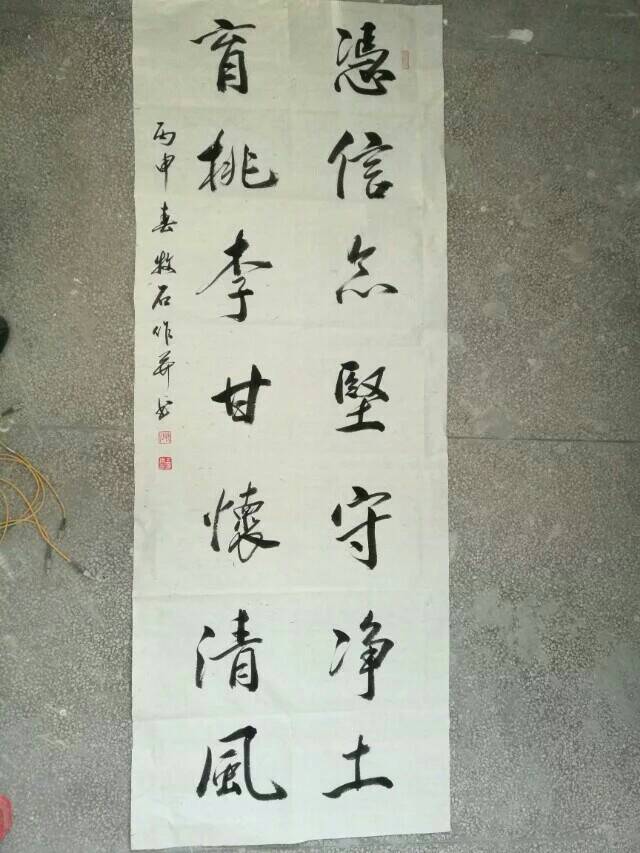 憑信念堅守净土
育桃李甘懷清風
丙申春牧石作并书